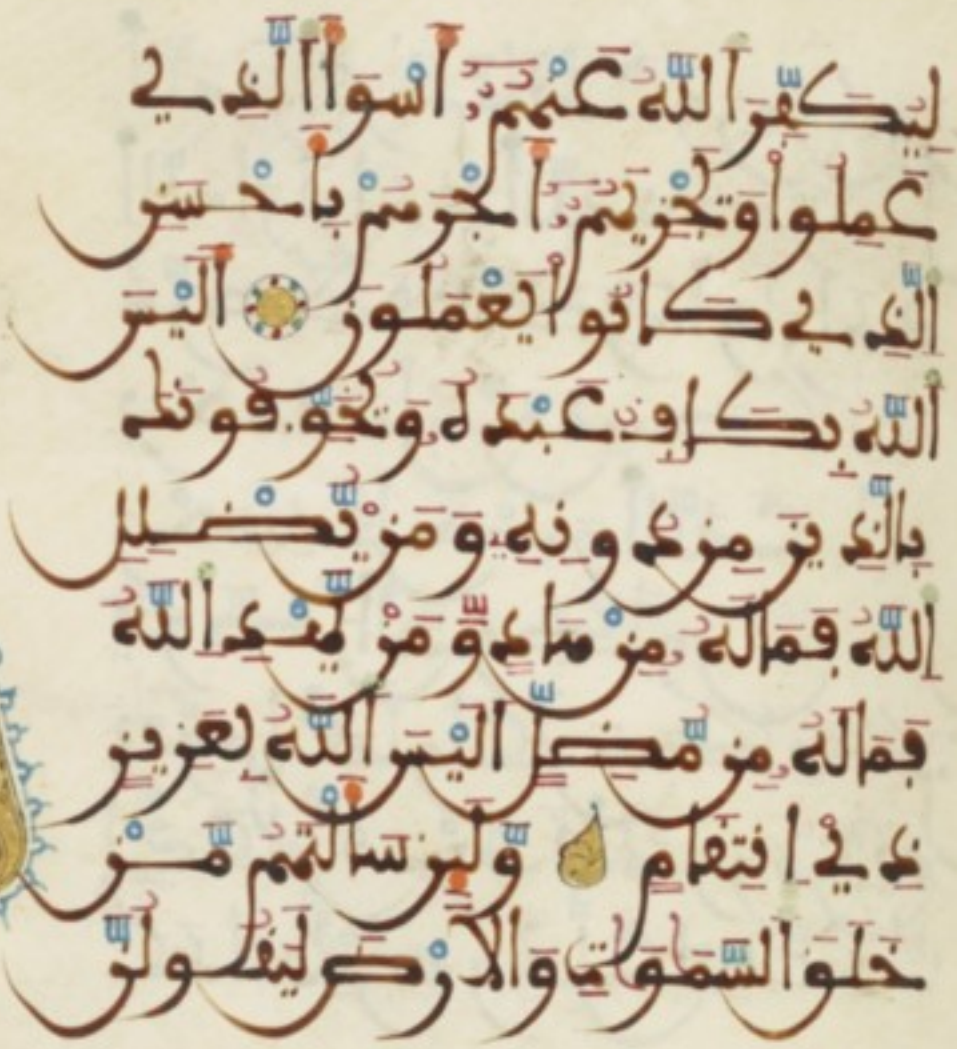 لِيُكَفِّرَ اللَّهُ عَنْهُمْ أَسْوَأَ الَّذِي
عَمِلُوا وَيَجْزِيَهُمْ أَجْرَهُمْ بِأَحْسَنِ
الَّذِي كَانُوا يَعْمَلُونَ أَلَيْسَ
اللَّهُ بِكَافٍ عَبْدَهُ وَيُخَوِّفُونَكَ
بِالَّذِينَ مِن دُونِهِ وَمَنْ يُضْلِلِ
اللَّهُ فَمَا لَهُ مِنْ هَادٍ وَمَنْ يَهْدِ اللَّهُ
فَمَا لَهُ مِن مُّضِلٍّ أَلَيْسَ اللَّهُ بِعَزِيزٍ
ذِي انتِقَامٍ وَلَئِن سَأَلْتَهُم مَّنْ
خَلَقَ السَّمَٰوَٰتِ وَالْأَرْضَ لَيَقُولُنَّ